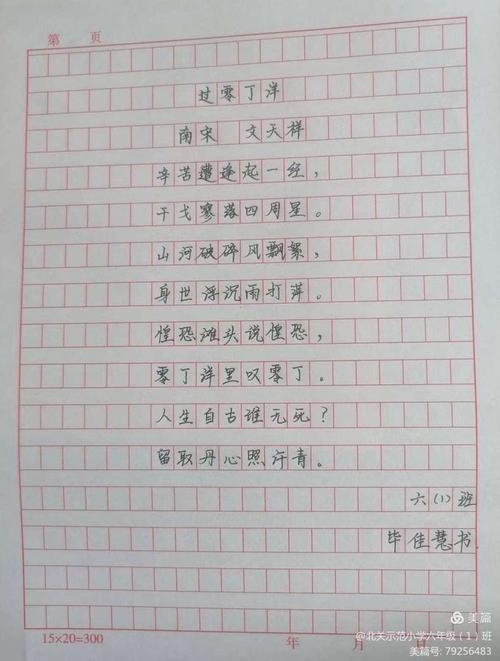 第 页
过零丁洋
南宋 文天祥
辛苦遭逢起一经，
干戈寥落四周星。
山河破碎风飘絮，
身世浮沉雨打萍。
惶恐滩头说惶恐，
零丁洋里叹零丁。
人生自古谁无死？
留取丹心照汗青。
六（1）班
毕佳慧书
15×20=300 年 月 日
美篇
@北关示范小学六年级（1）班
美篇号: 79256483